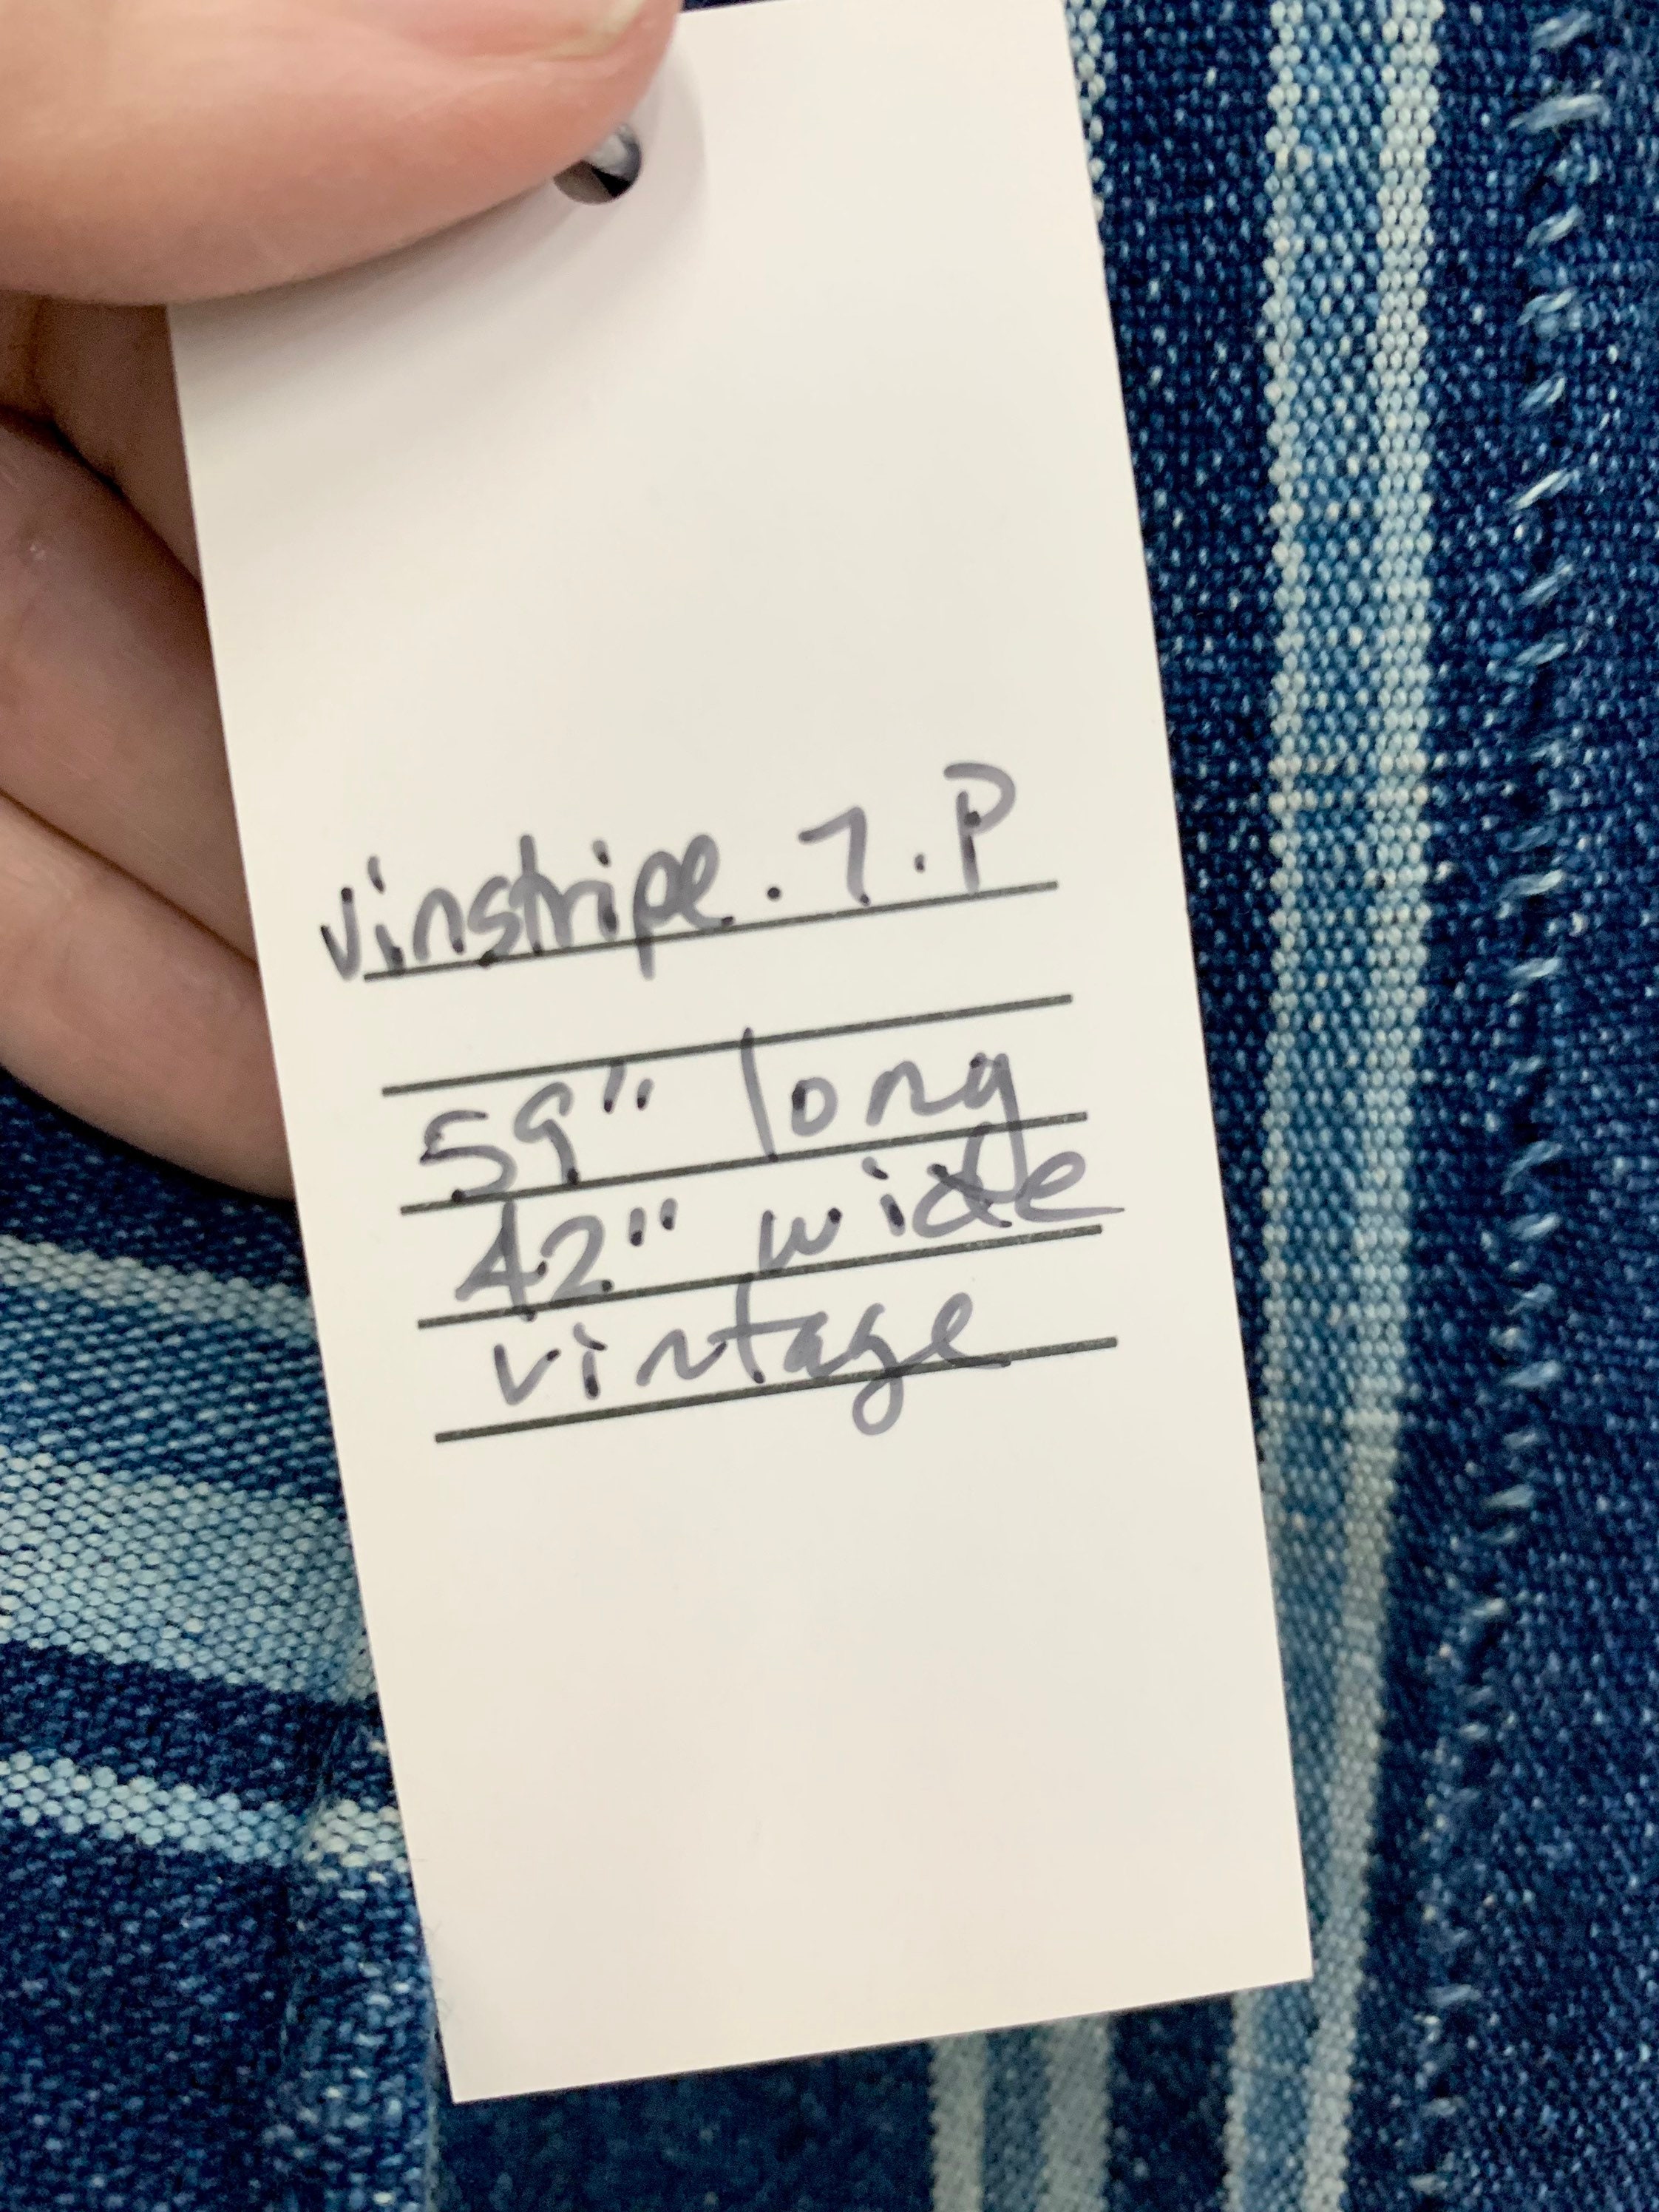 vinstripe.7.P
59" long
42" wide
vintage